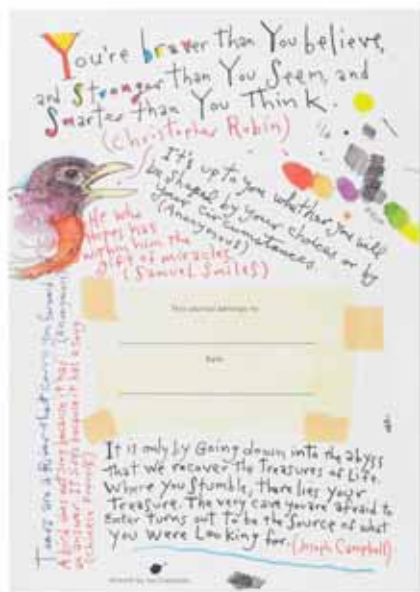 You're braver Than You believe,
and Stronger than You Seem, and
Smarter than You Think.
(Christopher Robin)
It's up to you whether you will
be shaped by your choices or by
your circumstances
(Anonymous)
He who
hopes has
within him the
gift of miracles
(Samuel Smiles)
This journal belongs to
Date
Tears are a River that carry you forward
(Anonymous)
A bird does not sing because it has
an answer. It sings because it has a song
(Chinese Proverb)
It is only by Going down into the abyss
that we recover the Treasures of Life.
Where you stumble, there lies your
Treasure. The very cave you are afraid to
Enter turns out to be the Source of what
you were Looking for. (Joseph Campbell)